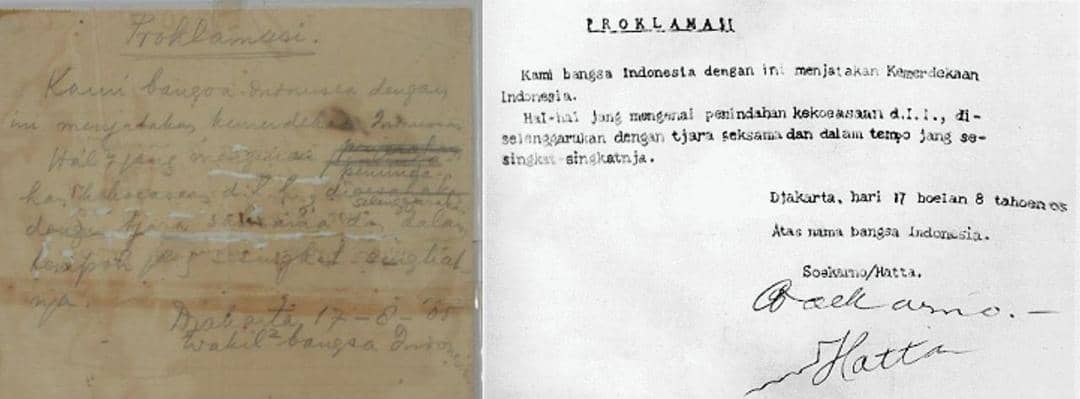 Proklamasi.
Kami bangsa Indonesia dengan
ini menjatakan kemerdekaan Indonesia
Hal2 jang mengenai
kekoeasaan d.l.l.
diselenggarakan
dengan tjara saksama dan dalam
tempoh jang singkat-singkat
nja.
Djakarta, 17-8-'05
Wakil2 bangsa Indonesia
PROKLAMASI
Kami bangsa Indonesia dengan ini menjatakan Kemerdekaan
Indonesia.
Hal-hal jang mengenai pemindahan kekoeasaan d.l.l., di-
selenggarakan dengan tjara seksama dan dalam tempo jang se-
singkat-singkatnja.
Djakarta, hari 17 boelan 8 tahoen 05
Atas nama bangsa Indonesia.
Soekarno/Hatta.
Soekarno.-
Hatta